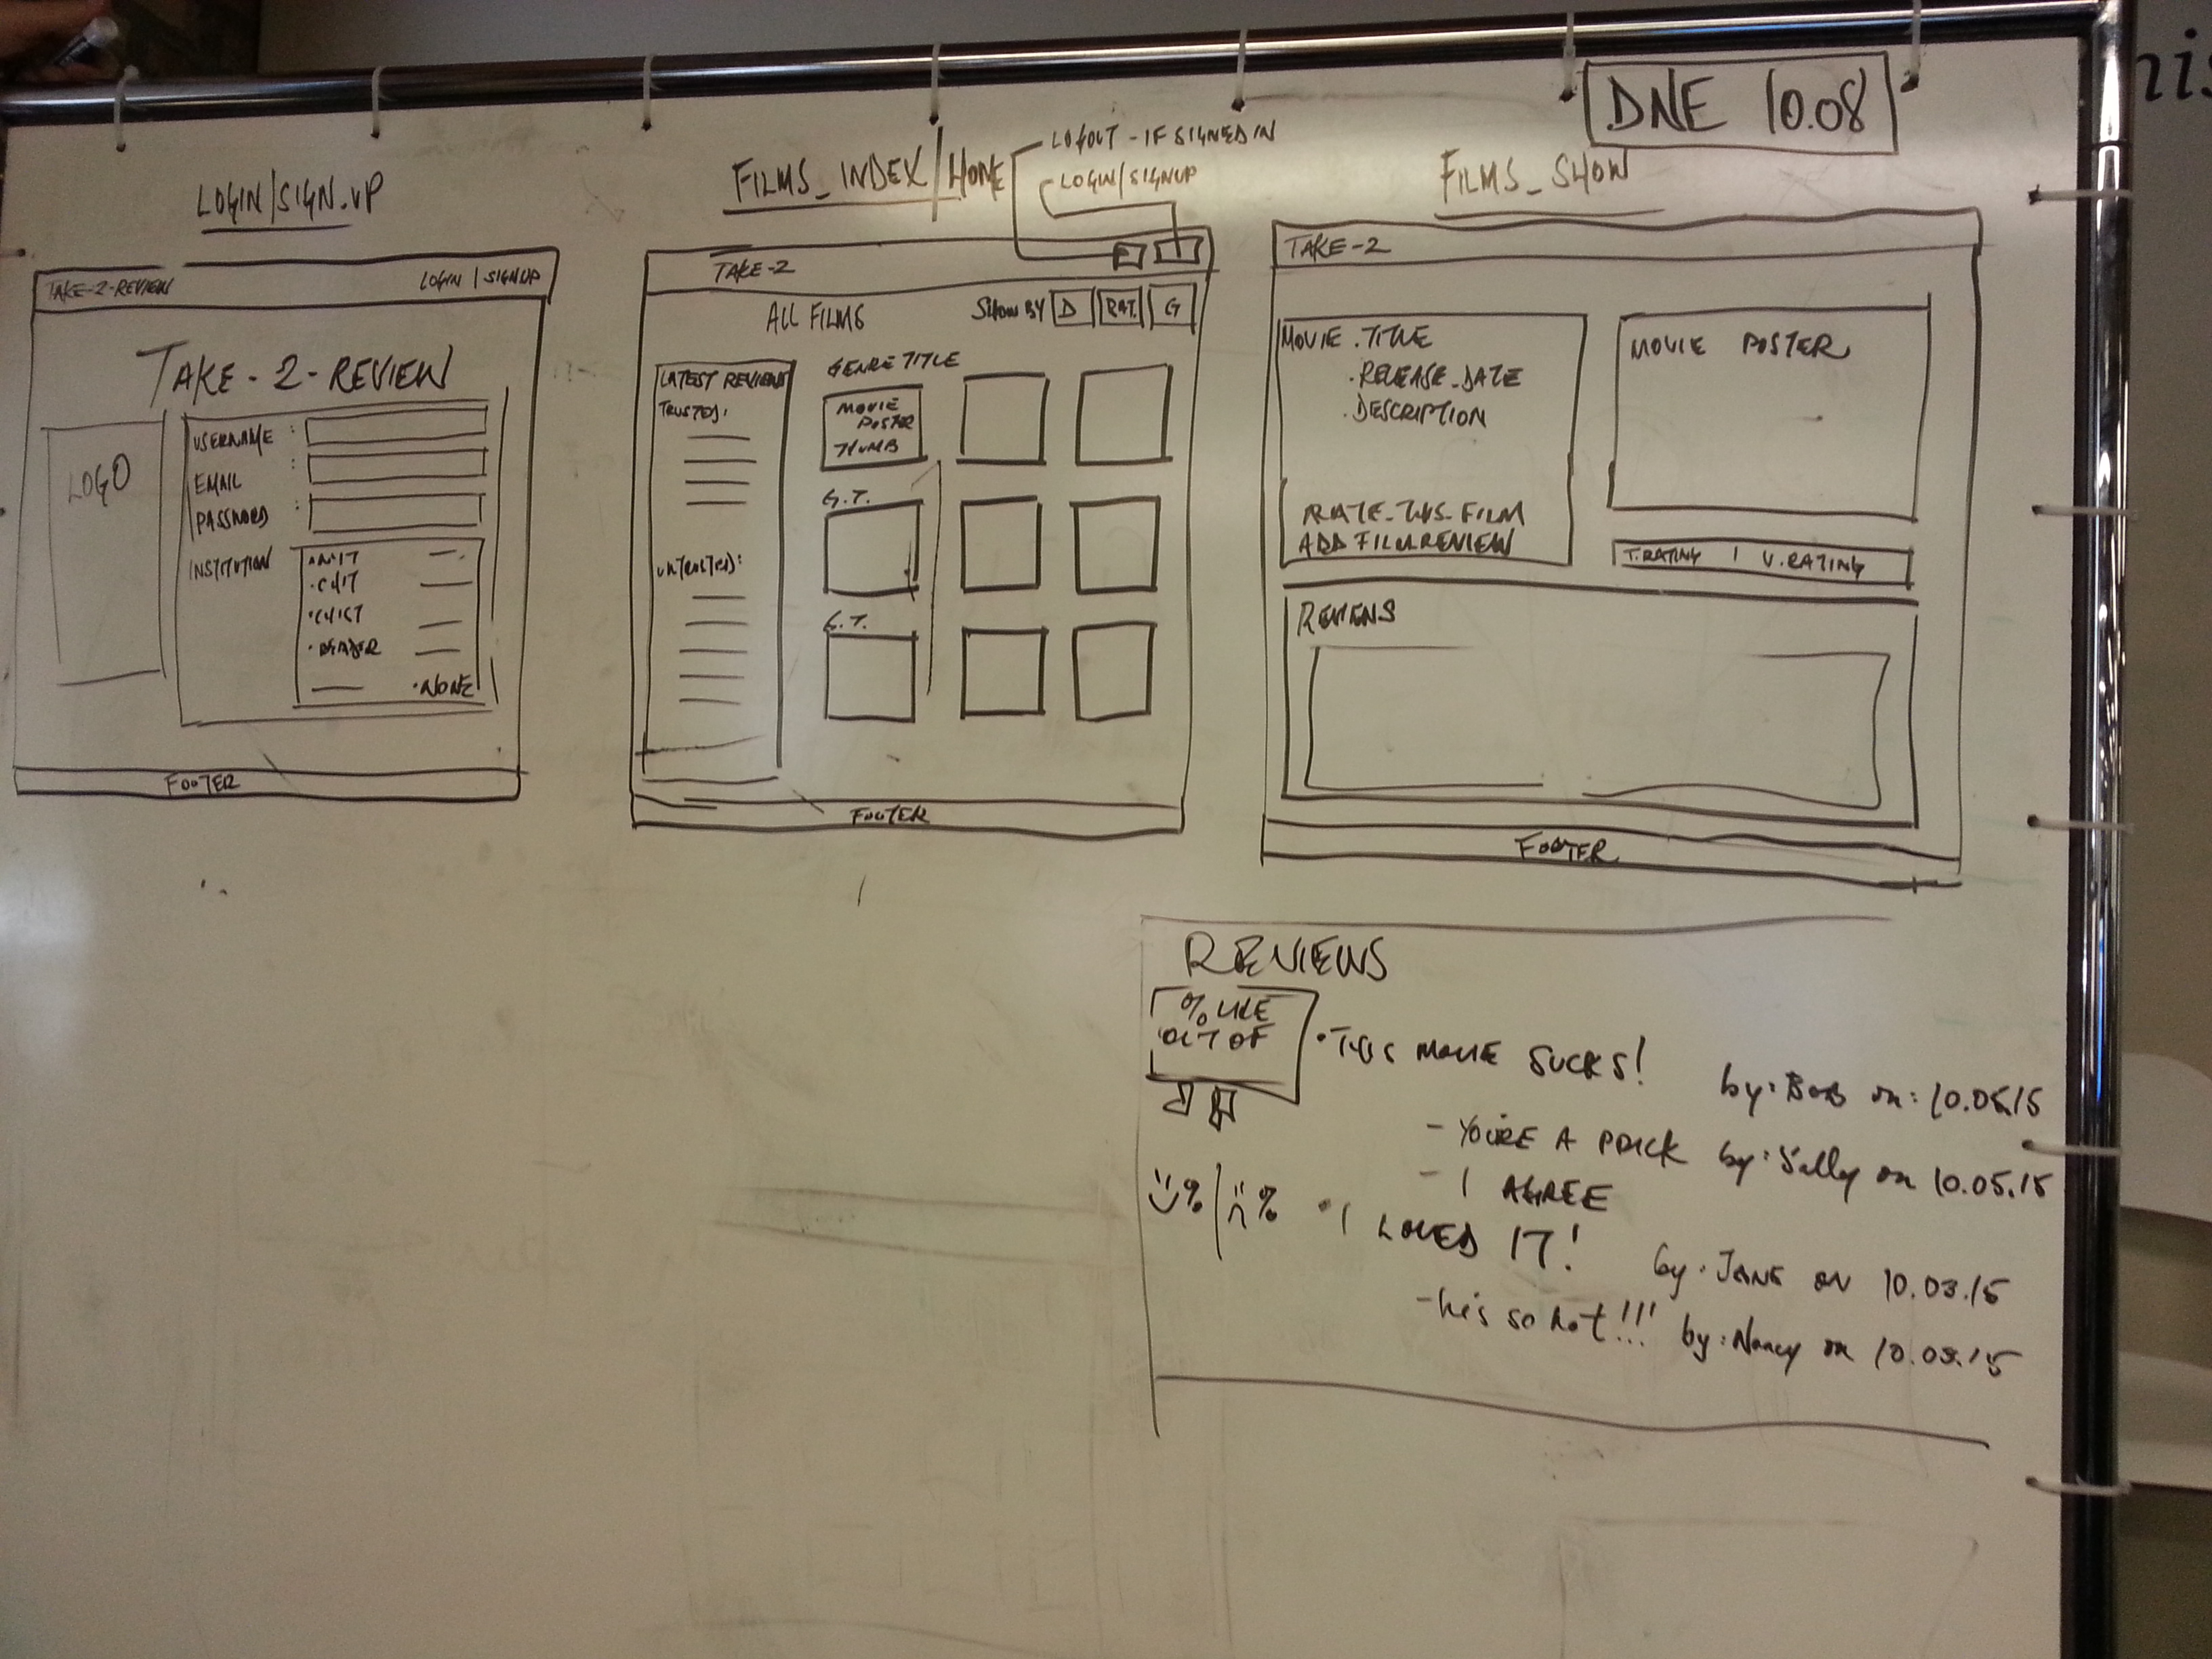 DNE 10.08
LOGIN/SIGN.UP
TAKE-2-REVIEW
LOGIN | SIGNUP
TAKE-2-REVIEW
LOGO
USERNAME :
EMAIL :
PASSWORD :
INSTITUTION
·NONE
FOOTER
FILMS_INDEX/HOME
LOGOUT - IF SIGNED IN
LOGIN/SIGNUP
TAKE-2
ALL FILMS
SHOW BY D RAT. G
LATEST REVIEWS
TRUSTED:
UNTRUSTED:
GENRE TITLE
MOVIE
POSTER
THUMB
G.T.
G.T.
FOOTER
FILMS_SHOW
TAKE-2
MOVIE.TITLE
.RELEASE_DATE
.DESCRIPTION
RATE_THIS_FILM
ADD FILM REVIEW
MOVIE POSTER
T.RATING | U.RATING
REVIEWS
FOOTER
REVIEWS
% LIKE
OUT OF
·THIS MOVIE SUCKS! by: BOB on: 10.05.15
- YOU'RE A PRICK by: Sally on 10.05.15
- I AGREE
% | %
·I LOVED IT! by: JANE ON 10.03.15
- he's so hot!!! by: Nancy on 10.03.15